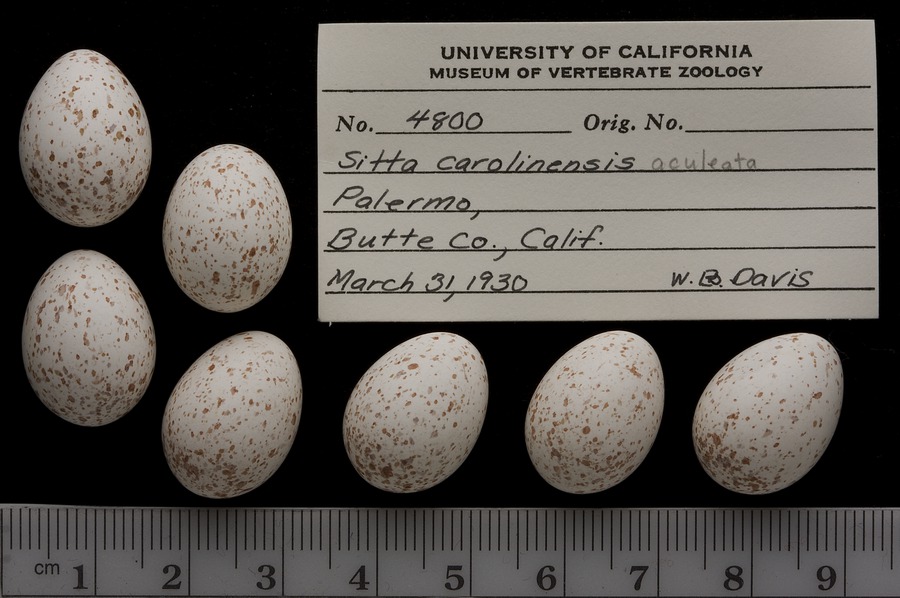 UNIVERSITY OF CALIFORNIA
MUSEUM OF VERTEBRATE ZOOLOGY
No. 4800 Orig. No.
Sitta carolinensis aculeata
Palermo,
Butte Co., Calif.
March 31, 1930 W. B. Davis
cm 1 2 3 4 5 6 7 8 9